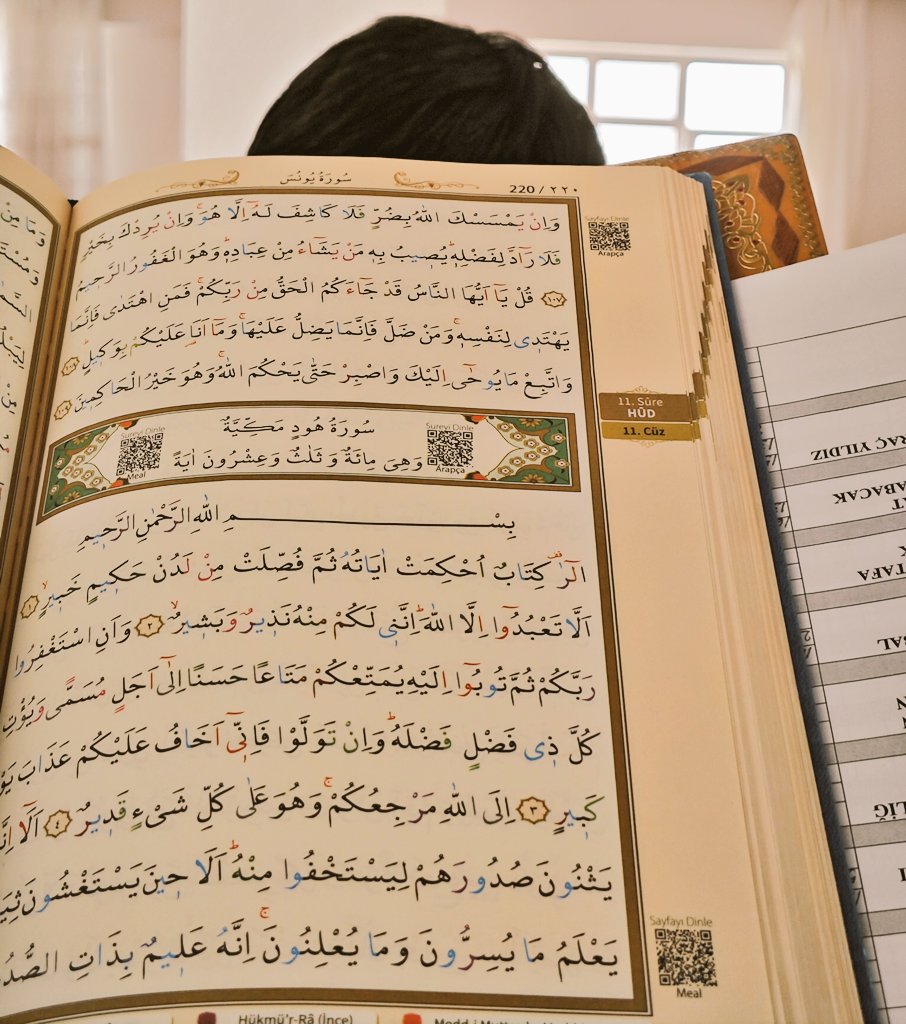 سُورَةُ يُونُسَ
220 / ٢٢٠
وَاِنْ يَمْسَسْكَ اللّٰهُ بِضُرٍّ فَلَا كَاشِفَ لَهُٓ اِلَّا هُوَۚ وَاِنْ يُرِدْكَ بِخَيْرٍ
فَلَا رَٓادَّ لِفَضْلِهٖۜ يُصٖيبُ بِهٖ مَنْ يَشَٓاءُ مِنْ عِبَادِهٖۜ وَهُوَ الْغَفُورُ الرَّحٖيمُ
﴿١٠٧﴾ قُلْ يَٓا اَيُّهَا النَّاسُ قَدْ جَٓاءَكُمُ الْحَقُّ مِنْ رَبِّكُمْۚ فَمَنِ اهْتَدٰى فَاِنَّمَا
يَهْتَدٖى لِنَفْسِهٖۚ وَمَنْ ضَلَّ فَاِنَّمَا يَضِلُّ عَلَيْهَاۚ وَمَٓا اَنَا۬ عَلَيْكُمْ بِوَكٖيلٍۜ ﴿١٠٨﴾
وَاتَّبِعْ مَا يُوحٰٓى اِلَيْكَ وَاصْبِرْ حَتّٰى يَحْكُمَ اللّٰهُۚ وَهُوَ خَيْرُ الْحَاكِمٖينَ ﴿١٠٩﴾
سُورَةُ هُودٍ مَكِّيَّةٌ
وَهِىَ مِائَةٌ وَ ثَلٰثٌ وَعِشْرُونَ اٰيَةً
Sureyi Dinle
Meal
Sureyi Dinle
Arapça
بِسْمِ اللّٰهِ الرَّحْمٰنِ الرَّحٖيمِ
الٓرٰ۠ كِتَابٌ اُحْكِمَتْ اٰيَاتُهُ ثُمَّ فُصِّلَتْ مِنْ لَدُنْ حَكٖيمٍ خَبٖيرٍۙ ﴿١﴾
اَلَّا تَعْبُدُٓوا اِلَّا اللّٰهَۜ اِنَّنٖى لَكُمْ مِنْهُ نَذٖيرٌ وَبَشٖيرٌۙ ﴿٢﴾ وَاَنِ اسْتَغْفِرُوا
رَبَّكُمْ ثُمَّ تُوبُٓوا اِلَيْهِ يُمَتِّعْكُمْ مَتَاعًا حَسَنًا اِلٰٓى اَجَلٍ مُسَمًّى وَيُؤْتِ
كُلَّ ذٖى فَضْلٍ فَضْلَهُۜ وَاِنْ تَوَلَّوْا فَاِنّٖٓى اَخَافُ عَلَيْكُمْ عَذَابَ
كَبٖيرٍ ﴿٣﴾ اِلَى اللّٰهِ مَرْجِعُكُمْۚ وَهُوَ عَلٰى كُلِّ شَىْءٍ قَدٖيرٌ ﴿٤﴾ اَلَٓا
يَثْنُونَ صُدُورَهُمْ لِيَسْتَخْفُوا مِنْهُۜ اَلَا حٖينَ يَسْتَغْشُونَ
يَعْلَمُ مَا يُسِرُّونَ وَمَا يُعْلِنُونَۚ اِنَّهُ عَلٖيمٌ بِذَاتِ
Hükmü'r-Râ (İnce)
Sayfayı Dinle
Arapça
11. Sûre
HÛD
11. Cüz
Sayfayı Dinle
Meal
YILDIZ